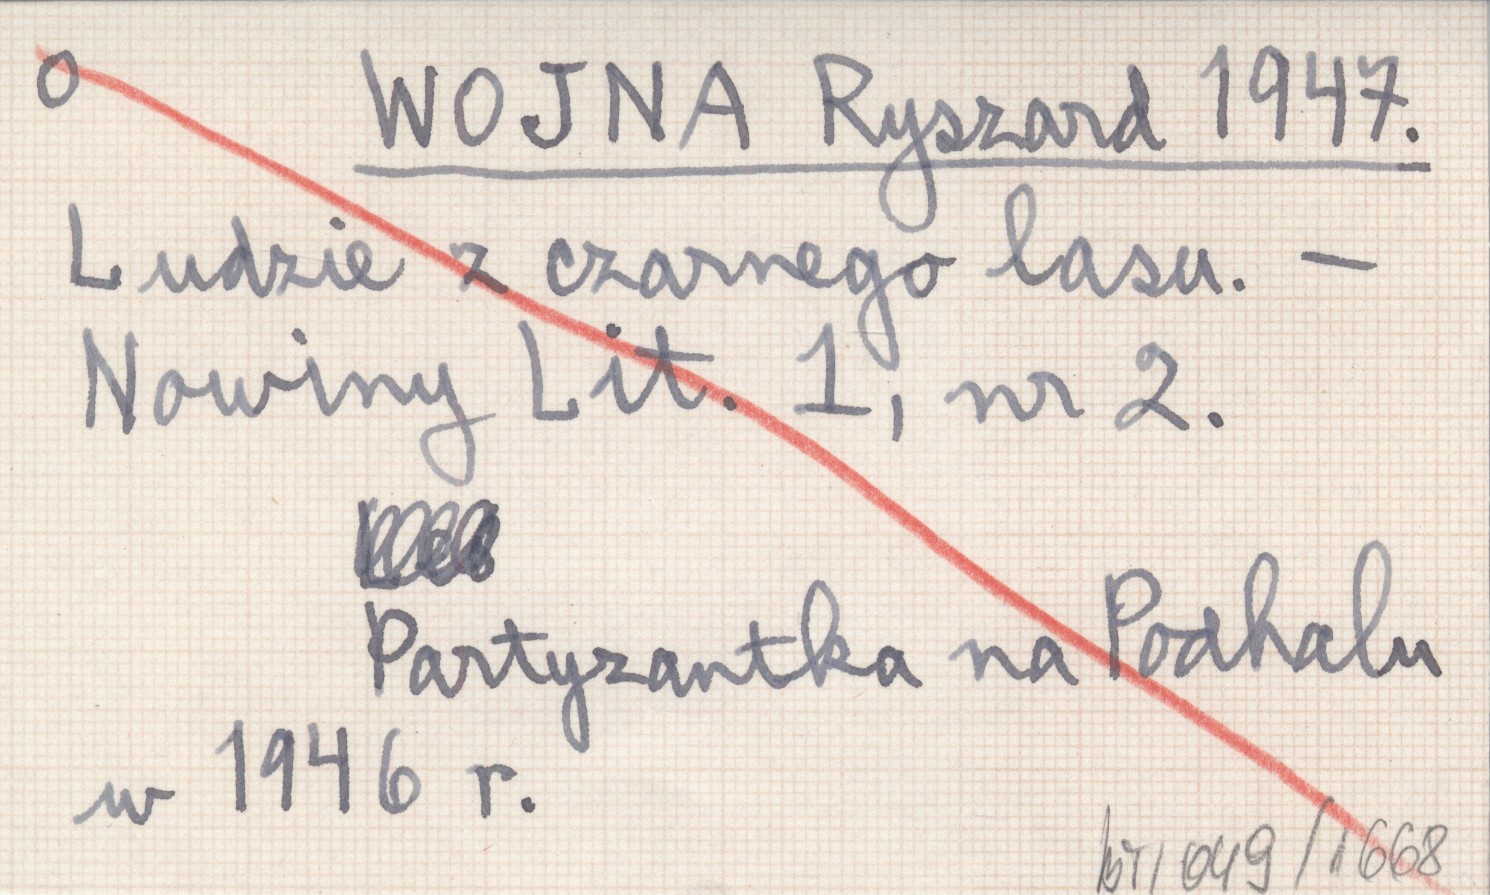 o WOJNA Ryszard 1947.
Ludzie z czarnego lasu. —
Nowiny Lit. 1, nr 2.
Partyzantka na Podhalu
w 1946 r.
049/1668